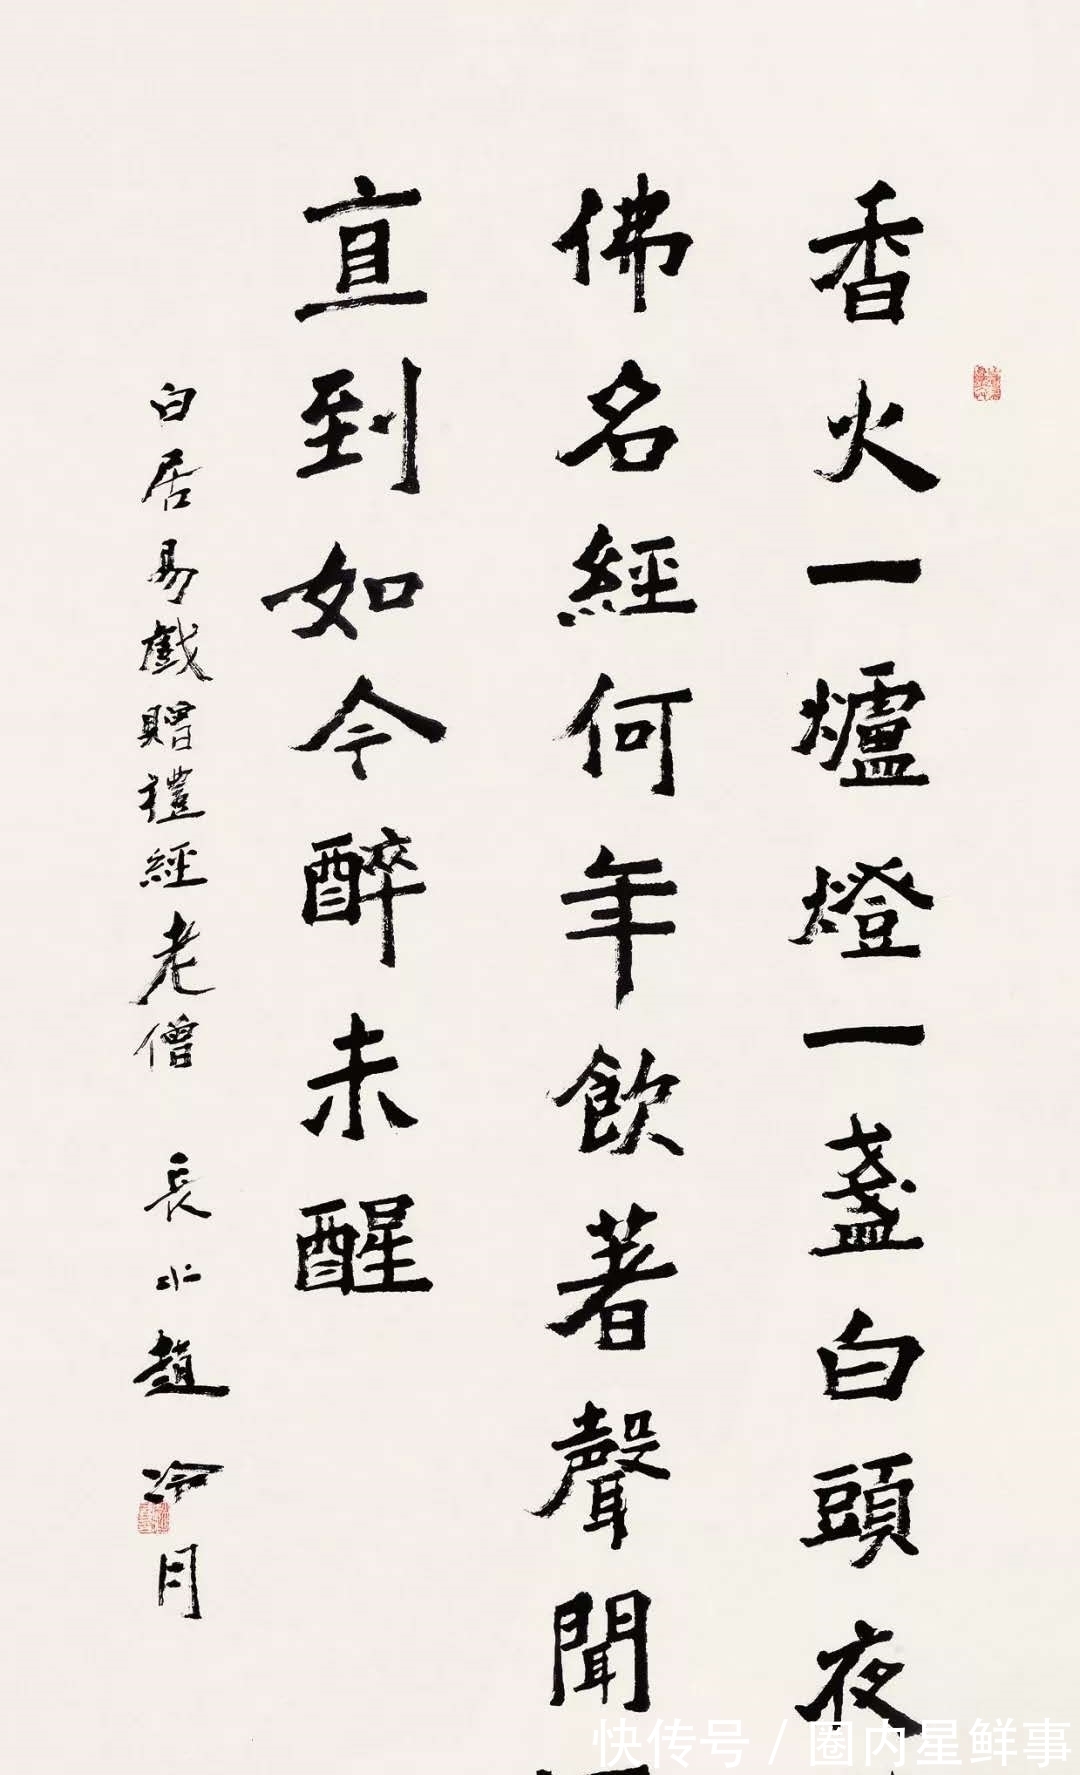 香火一爐燈一盞白頭夜
佛名經何年飲著聲聞
直到如今醉未醒
白居易戲贈禮經老僧 長水趙冷月
快传号 / 圈内星鲜事